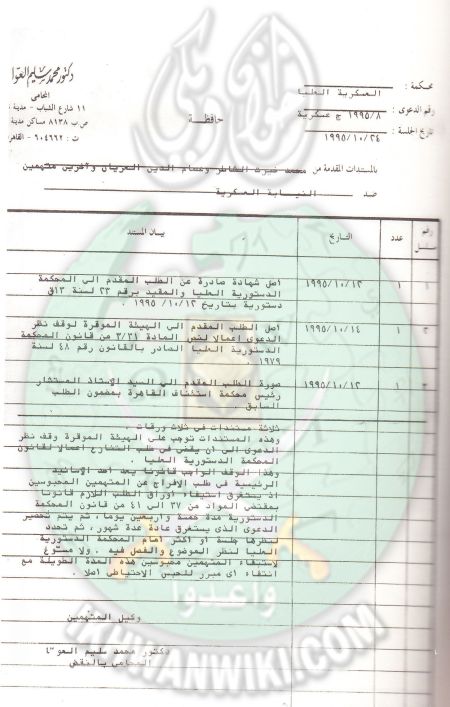 دكتور محمد سليم العوا
المحامى
١١ شارع الشباب - مدينة
ص.ب ٨١٣٨ مساكن مدينة
ت : ٩٠٤٦٦٢ - القاهر
محكمة : العسكرية العليا
رقم الدعوى : ١٩٩٥/٨ ج عسكرية
تاريخ الجلسة : ١٩٩٥/١٠/٢٤
حافظة
بالمستندات المقدمة من محمد خيرت الشاطر وعصام الدين العريان وآخرين متهمين
ضد النيابة العسكرية
رقم مسلسل
عدد
التاريخ
بيان المستند
١
١
١٩٩٥/١٠/١٢
أصل شهادة صادرة عن الطلب المقدم الى المحكمة
الدستورية العليا والمقيد برقم ٢٣ لسنة ١٣ق
دستورية بتاريخ ١٩٩٥/١٠/١٢ .
٢
١
١٩٩٥/١٠/١٤
أصل الطلب المقدم الى الهيئة الموقرة لوقف نظر
الدعوى اعمالا لنص المادة ٣/٣١ من قانون المحكمة
الدستورية العليا الصادر بالقانون رقم ٤٨ لسنة
١٩٧٩
٣
١
١٩٩٥/١٠/١٢
صورة الطلب المقدم الى السيد الاستاذ المستشار
رئيس محكمة استئناف القاهرة بمضمون الطلب
السابق .
ثلاثة مستندات فى ثلاث ورقات .
وهذه المستندات توجب على الهيئة الموقرة وقف نظر
الدعوى الى أن يقضى فى طلب التنازع اعمالا لقانون
المحكمة الدستورية العليا .
وهذا الوقف الواجب قانونا يعد أحد الأسانيد
الرئيسية فى طلب الافراج عن المتهمين المحبوسين
اذ يستغرق استيفاء أوراق الطلب اللازم قانونا
بمقتضى المواد من ٣٧ الى ٤١ من قانون المحكمة
الدستورية مدة خمسة وأربعين يوما، ثم يتم تحضير
الدعوى الذى يستغرق عادة عدة شهور، ثم تحدد
لنظرها جلسة أو أكثر أمام المحكمة الدستورية
العليا لنظر الموضوع والفصل فيه . ولا مسوغ
لاستبقاء المتهمين محبوسين هذه المدة الطويلة مع
انتفاء أى مبرر للحبس الاحتياطى أصلا .
وكيل المتهمين
دكتور محمد سليم العوا
المحامى بالنقض
إخوان ويكي
وأعدوا
IKHWANWIKI.COM